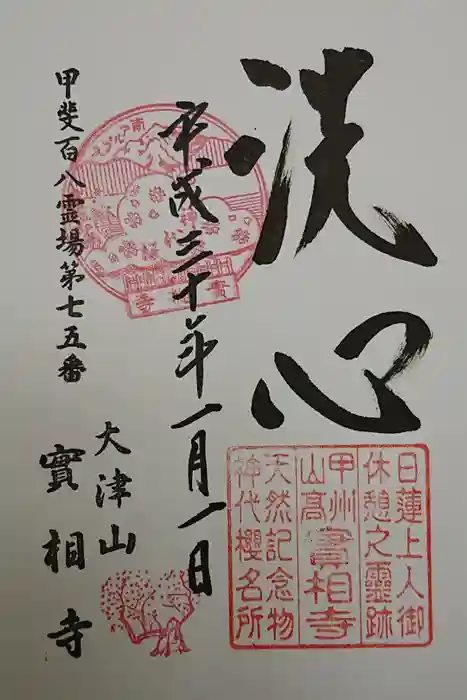 洗心
日蓮上人御
休憩之靈跡
甲州
山高
實相寺
天然記念物
神代櫻名所
平成三十年一月一日
甲斐百八霊場第七五番
大津山
實相寺
南アルプス
實相寺